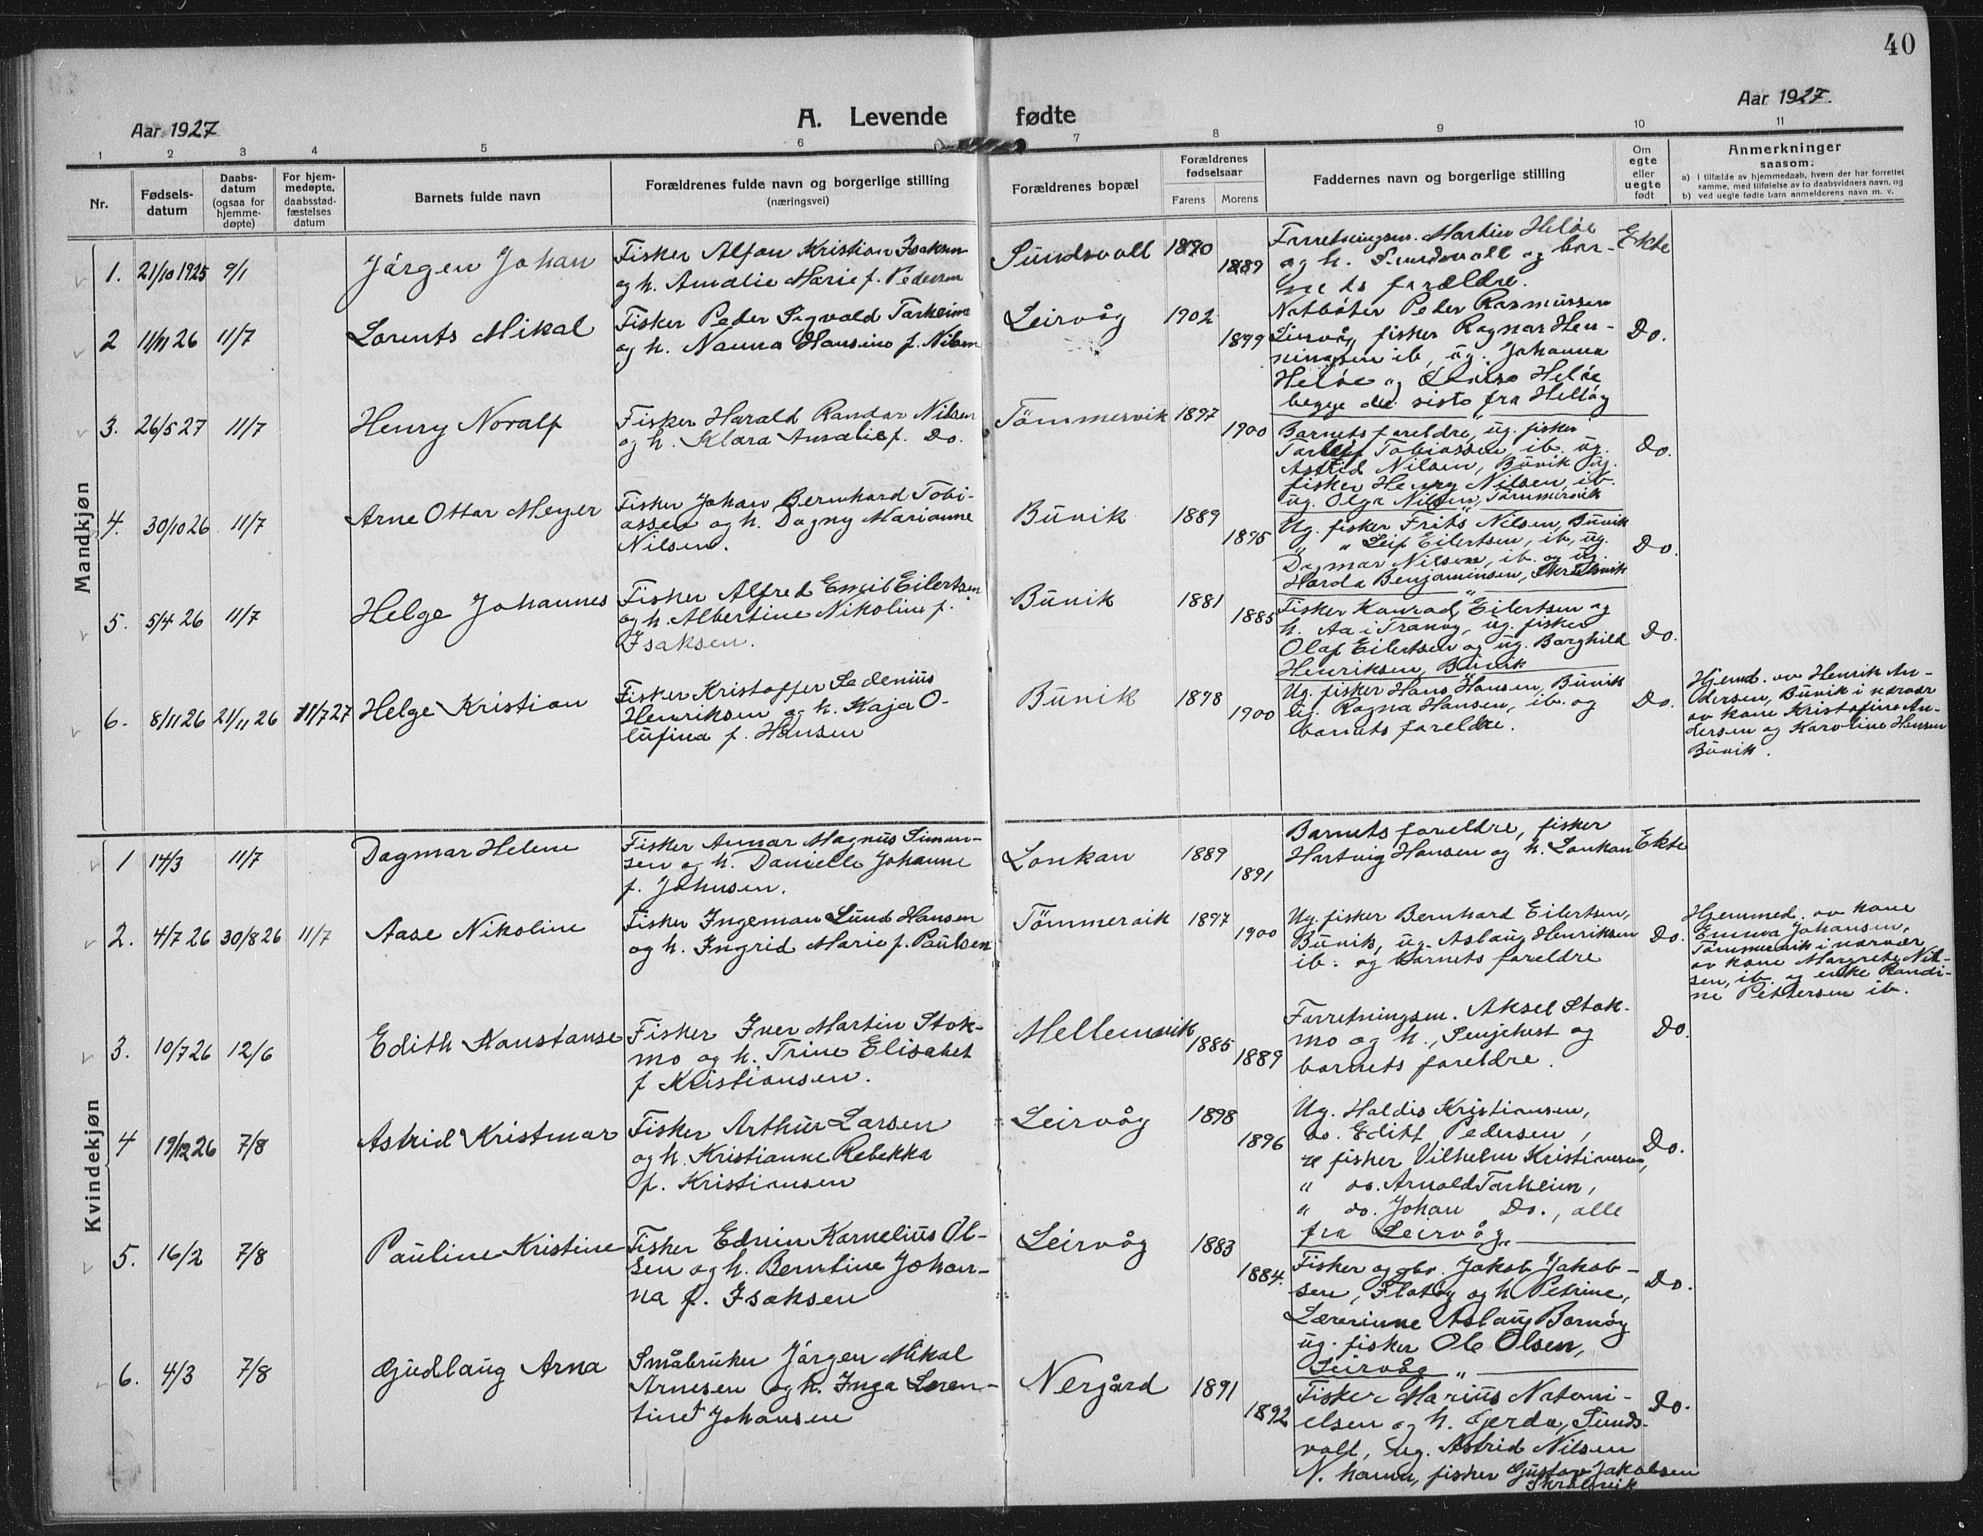 40
Aar 1927
A. Levende fødte
Aar 1927.
1 2 3 4 5 6 7 8 9 10 11
Nr.
Fødsels-
datum
Daabs-
datum
(ogsaa for
hjemme-
døpte)
For hjem-
medøpte,
daabsstad-
fæstelses
datum
Barnets fulde navn
Forældrenes fulde navn og borgerlige stilling
(næringsvei)
Forældrenes bopæl
Forældrenes
fødselsaar
Farens Morens
Faddernes navn og borgerlige stilling
Om
egte
eller
uegte
født
Anmerkninger
saasom:
a) I tilfælde av hjemmedaab, hvem der har forrettet
samme, med tilføielse av to daabsvidners navn, og
b) ved uegte fødte barn anmelderens navn m. v.
Mandkjøn
1. 21/10 1925 9/1
Jørgen Johan
Fisker Alfon Kristian Isaksen
og h. Amalie Marie f. Pedersen
Sundsvoll 1890
1889
Forretningsm. Martin Heløe
og h. Sundsvoll og bar-
nets forældre.
Ekte
2 11/11 26 11/7
Lorents Mikal
Fisker Peder Sigvald Torheim
og h. Nanna Hansine f. Nilsen
Leirvåg 1902
1899
Notbøter Peder Rasmussen
Leirvåg, fisker Ragnar Hen-
ningsen ib, ug. Johanna
Heløe og Louise Heløe
begge de siste fra Helløy
Do.
3. 26/5 27 11/7
Henry Noralf
Fisker Harald Randor Nilsen
og h. Klara Amalie f. Do.
Tømmervik 1897
1900
Barnets foreldre, ug. fisker
Torleif Tobiassen, ib. ug.
Astrid Nilsen, Buvik ug.
fisker Henry Nilsen, ib.
ug. Olga Nilsen, Tømmervik
Do.
4. 30/10 26 11/7
Arne Ottar Meyer
Fisker Johan Bernhard Tobi-
assen og h. Dagny Marianne
Nilsen.
Buvik 1889
1895
Ug. fisker Frits Nilsen, Buvik
" " Leif Eilertsen, ib, ug.
Dagmar Nilsen, ib. og ug.
Harda Benjaminsen,
Do.
5. 5/4 26 11/7
Helge Johannes
Fisker Alfred Emil Eilertsen
og h. Albertine Nikoline f.
Isaksen.
Buvik 1881
1885
Fisker Konrad Eilertsen og
h. Aa i Tranøy, ug. fisker
Olaf Eilertsen og ug. Borghild
Henriksen, Buvik
Do.
6. 8/11 26 21/11 26 11/7 27
Helge Kristian
Fisker Kristoffer Sedenius
Henriksen og h. Kaja O-
lufina f. Hansen
Buvik 1878
1900
Ug. fisker Hans Hansen, Buvik
ug. Ragna Hansen, ib. og
barnets foreldre.
Do.
Hjemd. av Henrik An-
dersen, Buvik i nærvær
av kone Kristofine An-
dersen og Karoline Hansen
Buvik.
Kvindekjøn
1 14/3 11/7
Dagmar Helene
Fisker Annar Magnus Simon-
sen og h. Danielle Johanne
f. Johnsen.
Lonkan 1889
1891
Barnets foreldre, fisker
Hartvig Hansen og h. Lonkan
Ekte
2. 4/7 26 30/8 26 11/7
Aase Nikoline
Fisker Ingeman Lund Hansen
og h. Ingrid Marie f. Paulsen
Tömmervik 1897
1900
Ug. fisker Bernhard Eilertsen,
Buvik, ug. Aslaug Henriksen
ib. og barnets foreldre
Do.
Hjemmed. av kone
Emma Johansen,
Tømmervik i nærvær
av kone Margrete Nil-
sen, ib. og enke Randi-
ne Pettersen ib.
3. 10/7 26 12/6
Edith Konstanse
Fisker Iver Martin Stok-
mo og h. Trine Elisabet
f Kristiansen.
Mellemvik 1885
1889
Forretningsm. Aksel Stok-
mo og h., Senjehest og
barnets foreldre.
Do.
4 19/12 26 7/8
Astrid Kristmar
Fisker Arthur Larsen
og h. Kristianne Rebekka
f. Kristiansen
Leirvåg 1898
1896
Ug. Haldis Kristiansen,
do. Edith Pedersen,
ug fisker Vilhelm Kristiansen,
" do. Arnold Torheim,
" do. Johan Do., alle
fra Leirvåg.
Do.
5. 16/2 7/8
Pauline Kristine
Fisker Edvin Kornelius Ol-
sen og h. Berntine Johan-
na f. Isaksen
Leirvåg 1883
1884.
Fisker og gbr. Jakob Jakob-
sen, Flatøy og h Petrine,
Lærerinne Aslaug Bornøy
ug. fisker Ole Olsen,
Leirvåg
Do.
6. 4/3 7/8
Gudlaug Arna
Småbruker Jørgen Mikal
Arnesen og h. Inga Loren-
tine Johansen
Nergård 1891
1892
Fisker Marius Natani-
elsen og h. Gerda, Sunds-
voll, ug. Astrid Nilsen
N. hamn, fisker Gustav Jakobsen
Skrolsvik
Do.